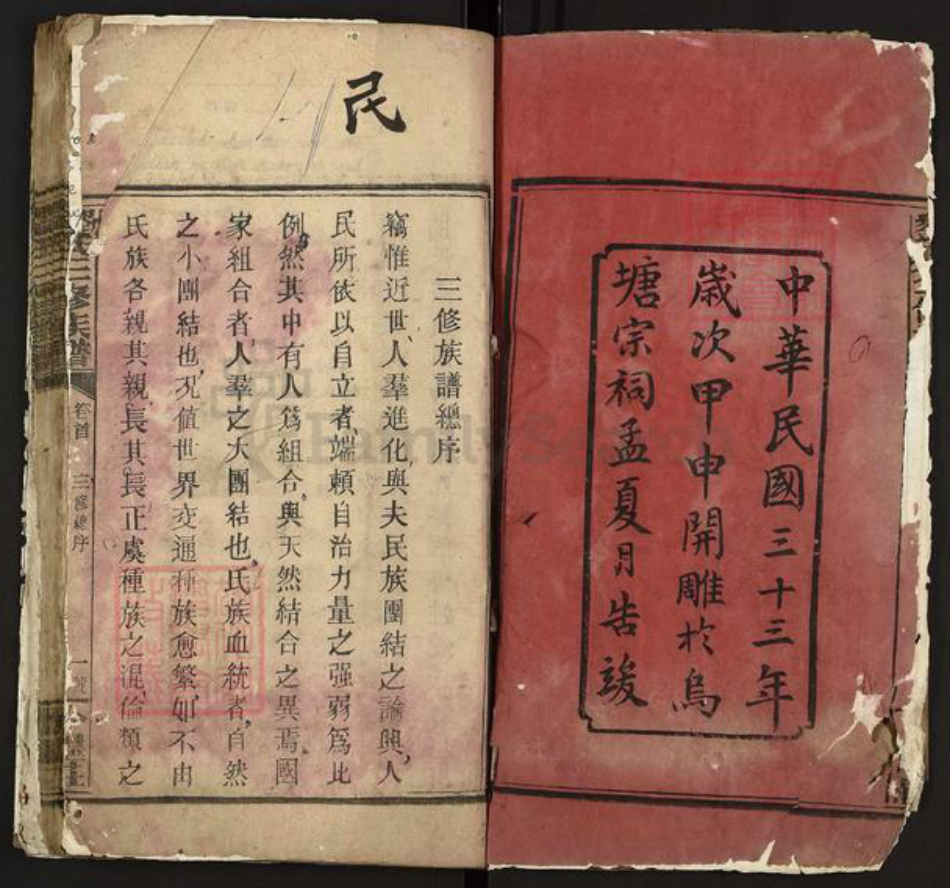 中華民國三十三年
歲次甲申開雕於烏
塘宗祠孟夏月告竣
民
三修族譜總序
竊惟近世人羣進化與夫民族團結之論興人
民所依以自立者端賴自治力量之强弱爲比
例然其中有人爲組合與天然結合之異焉國
家組合者人羣之大團結也氏族血統者自然
之小團結也况值世界交通種族愈繁如不由
氏族各親其親長其長正虞種族之混倫類之
三修族譜
卷首
三修總序
一號
FamilySearch